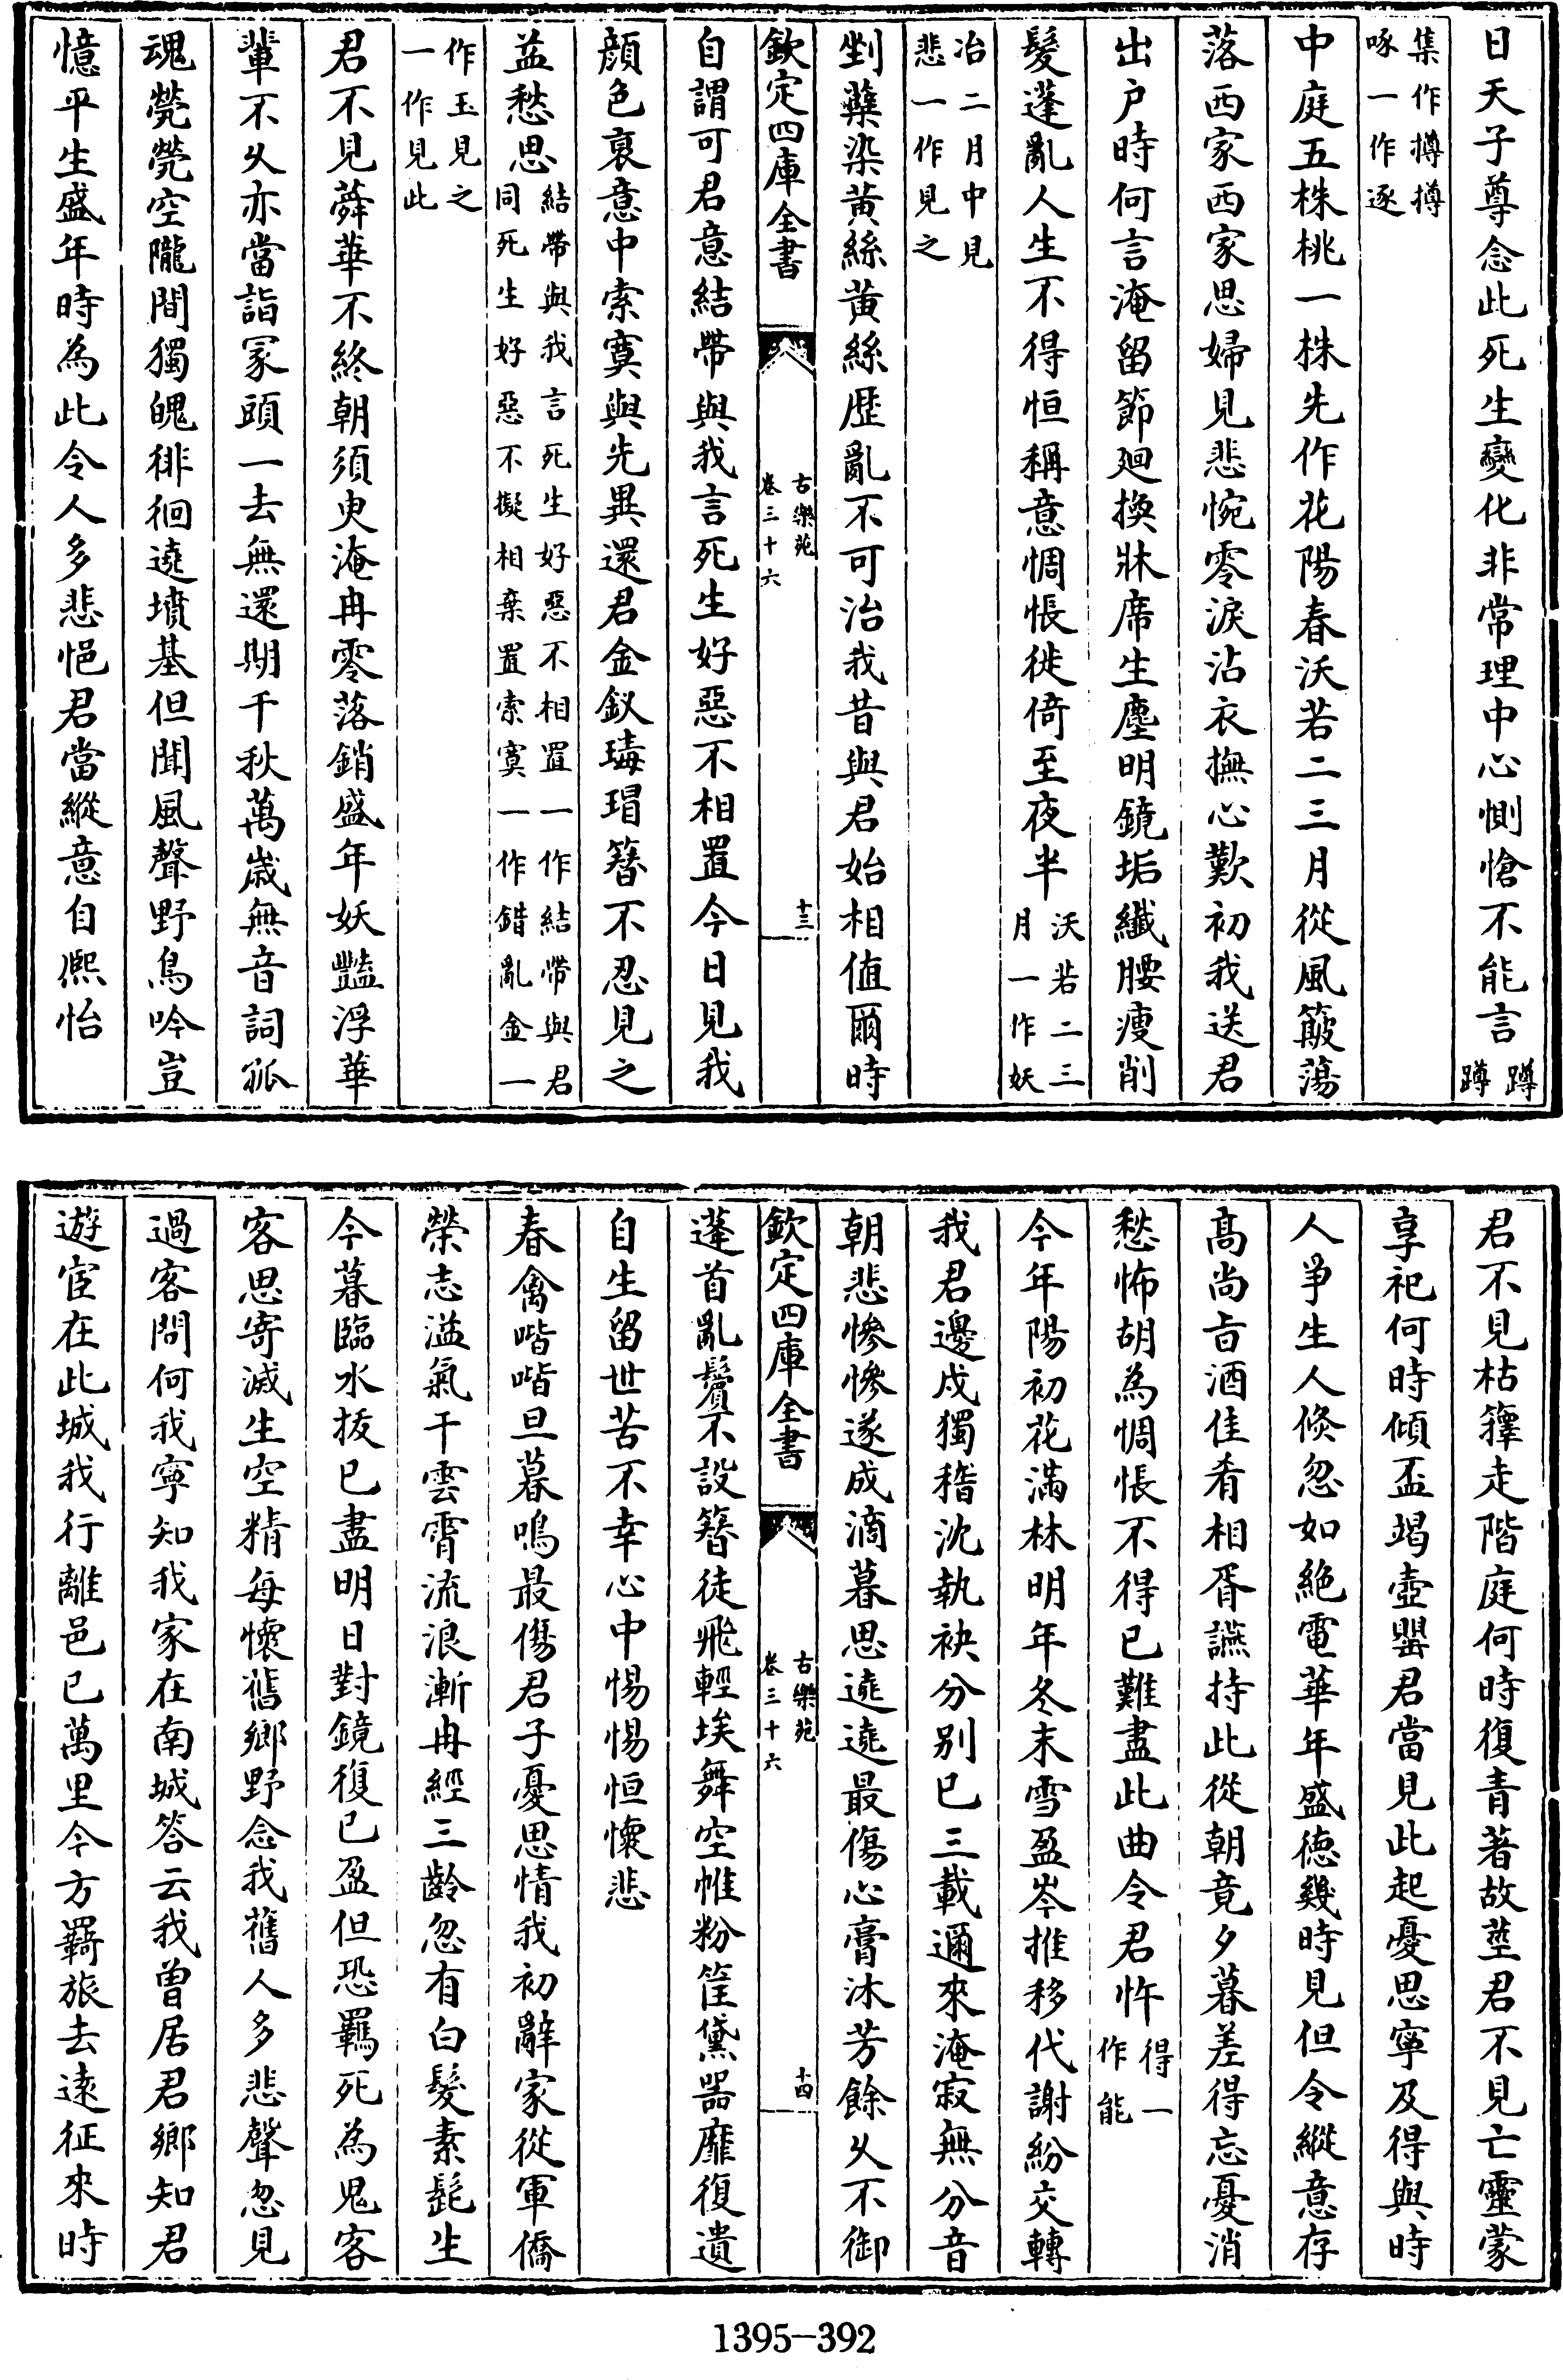 日天子尊念此死生變化非常理中心惻愴不能言蹲蹲
集作樽樽啄一作逐
中庭五株桃一株先作花陽春沃若二三月從風簸蕩
落西家西家思婦見悲惋零淚沾衣撫心歎初我送君
出户時何言淹留節廻換牀席生塵明鏡垢纎腰瘦削
髮蓬亂人生不得恒稱意惆悵徙倚至夜半沃若二三月一作妖
冶二月中見悲一作見之
剉蘗染黄絲黄絲歴亂不可治我昔與君始相值爾時
欽定四庫全書
古樂苑
卷三十六
十三
自謂可君意結帶與我言死生好惡不相置今日見我
顔色衰意中索寞與先異還君金釵瑇瑁簪不忍見之
益愁思結帶與我言死生好惡不相置一作結帶與君同死生好惡不擬相棄置索寞一作錯亂金一
作玉見之一作見此
君不見蕣華不終朝須臾淹冉零落銷盛年妖豔浮華
輩不乆亦當詣冢頭一去無還期千秋萬歲無音詞孤
魂煢煢空隴間獨魄徘徊遶墳基但聞風聲野鳥吟豈
憶平生盛年時為此令人多悲悒君當縱意自熈怡
君不見枯籜走階庭何時復青著故莖君不見亡靈蒙
享祀何時傾盃竭壺罌君當見此起憂思寧及得與時
人爭生人倐忽如絶電華年盛德幾時見但令縱意存
髙尚旨酒佳肴相胥讌持此從朝竟夕暮差得忘憂消
愁怖胡為惆悵不得已難盡此曲令君忤得一作能
今年陽初花滿林明年冬末雪盈岑推移代謝紛交轉
我君邊戍獨稽沈執袂分别已三載邇來淹寂無分音
朝悲慘慘遂成滴暮思遶遶最傷心膏沐芳餘乆不御
欽定四庫全書
古樂苑
卷三十六
十四
蓬首亂鬢不設簪徒飛輕埃舞空帷粉筐黛器靡復遺
自生留世苦不幸心中惕惕恒懷悲
春禽喈喈旦暮鳴最傷君子憂思情我初辭家從軍僑
榮志溢氣干雲霄流浪漸冉經三齡忽有白髮素髭生
今暮臨水拔已盡明日對鏡復已盈但恐羈死為鬼客
客思寄滅生空精每懷舊鄉野念我舊人多悲聲忽見
過客問何我寧知我家在南城答云我曾居君鄉知君
遊宦在此城我行離邑已萬里今方羇旅去逺征來時
1395-392